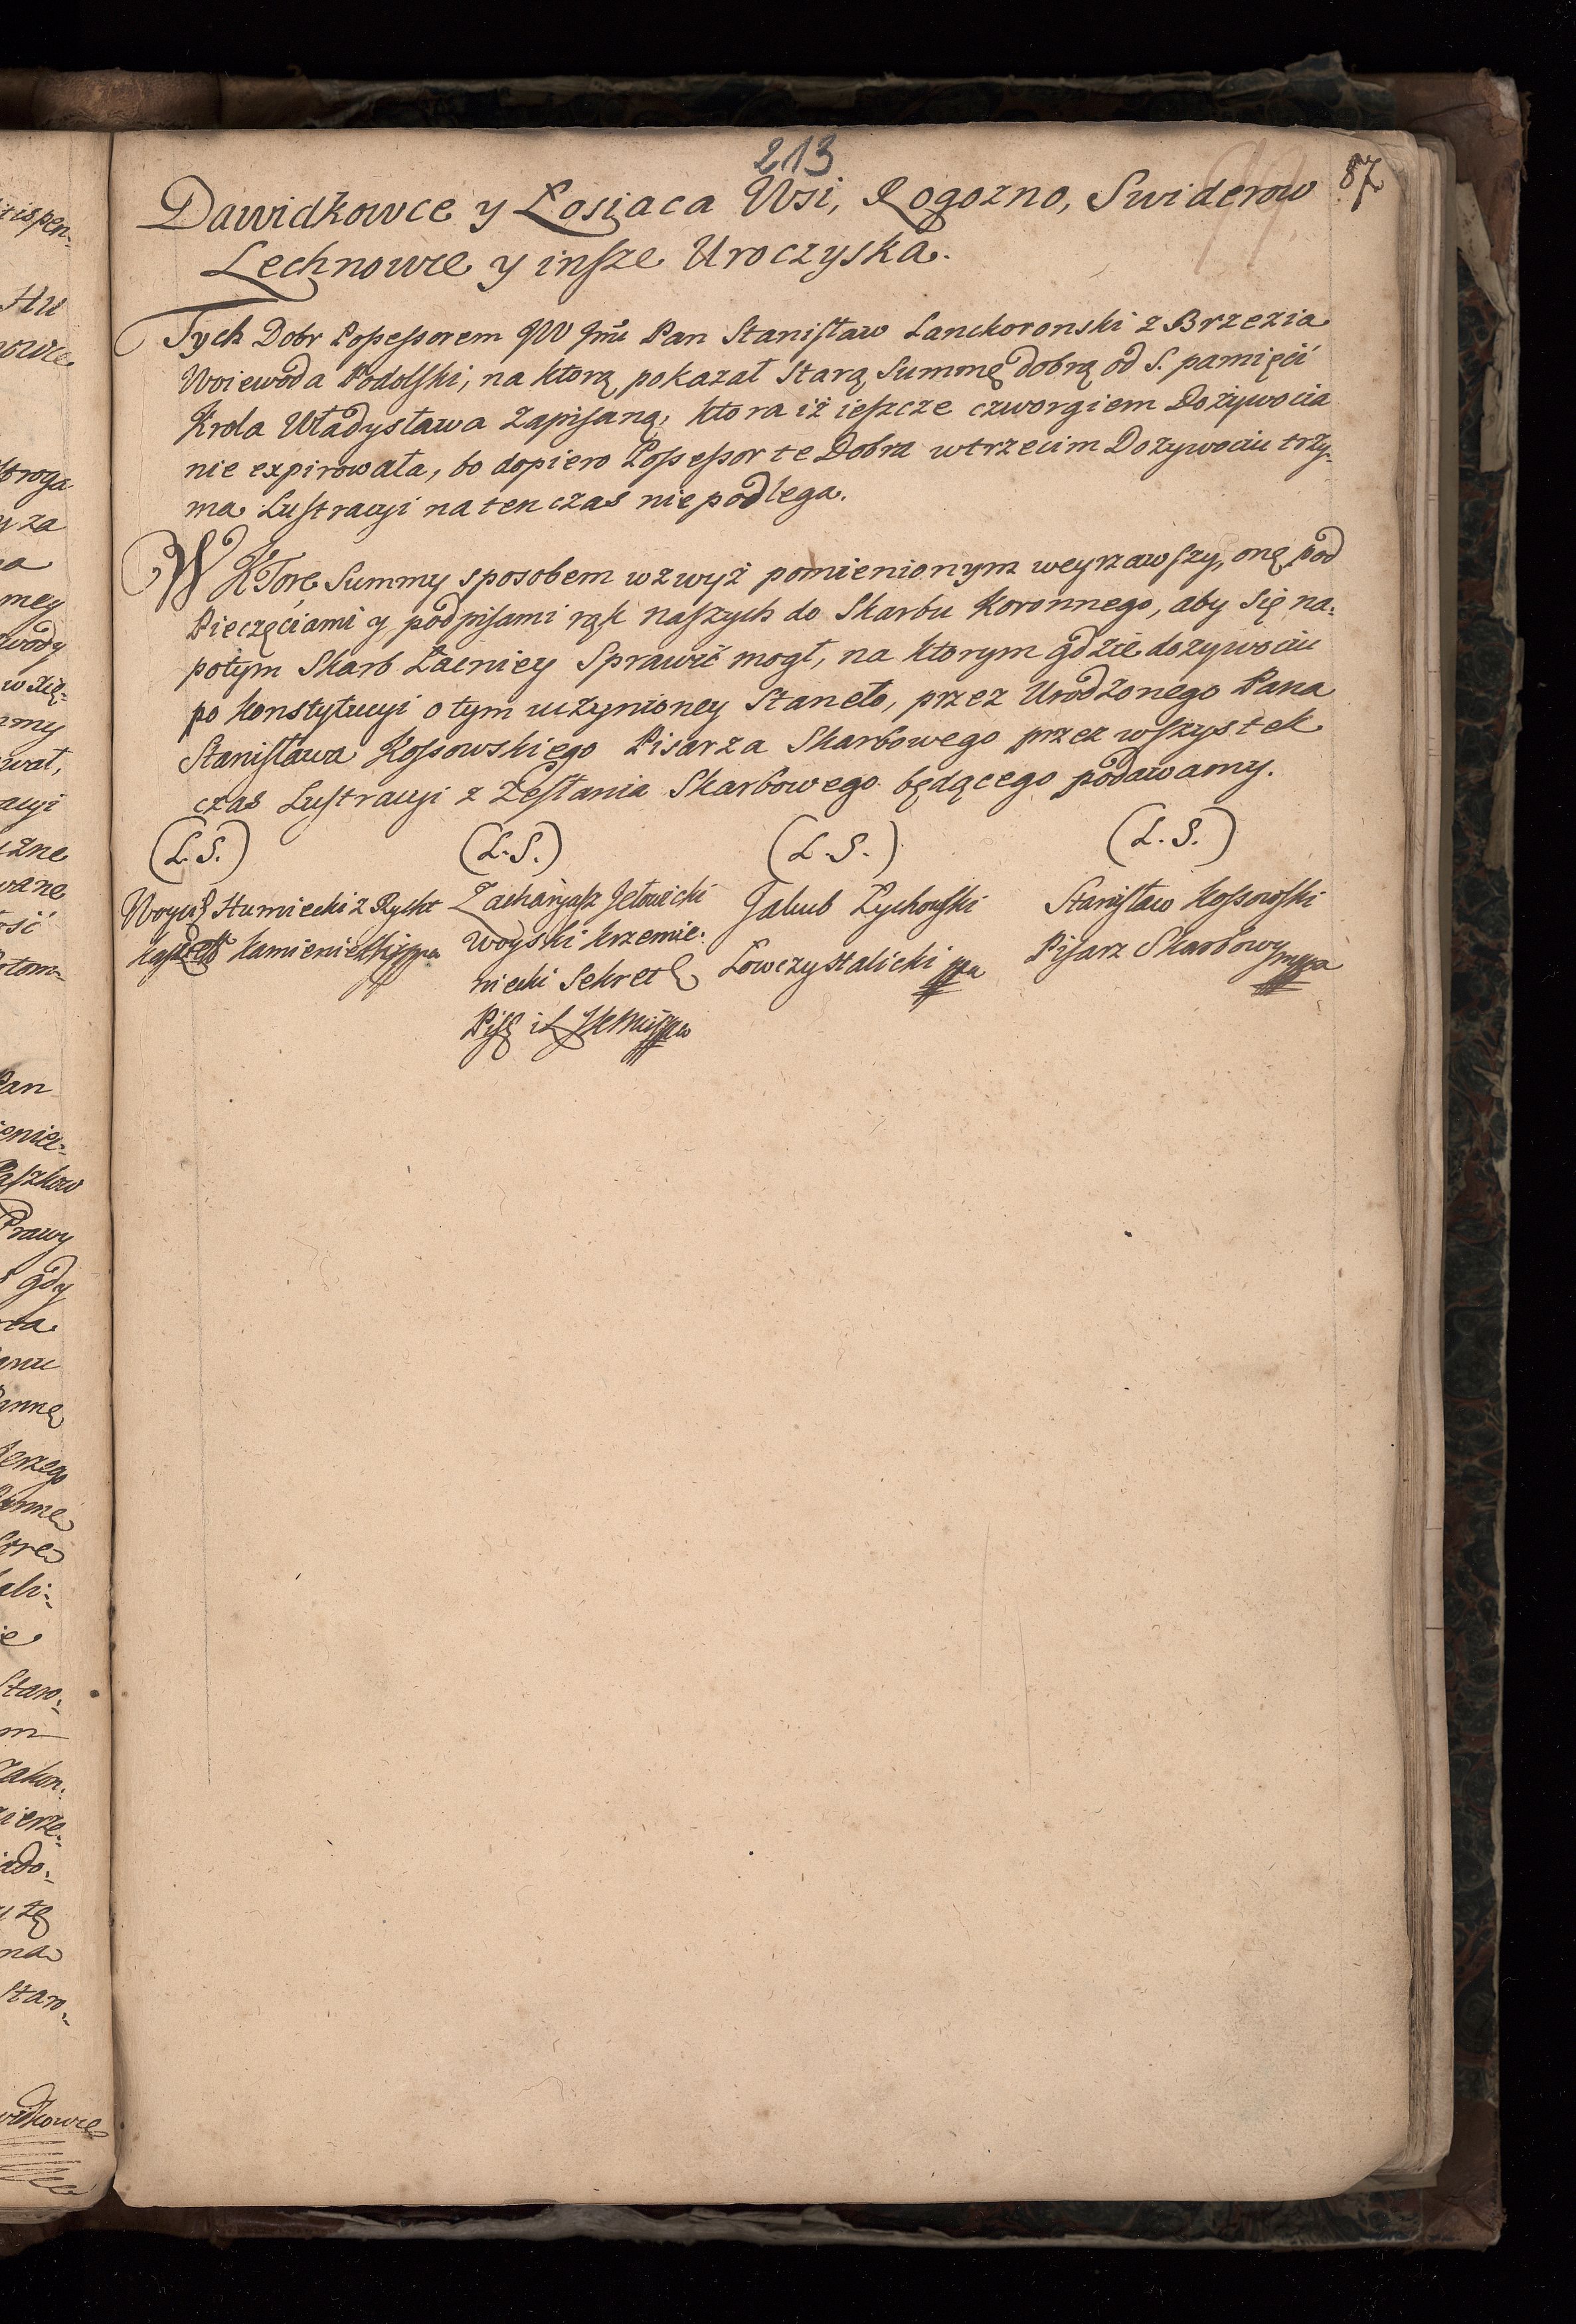 213
87
Dawidkowce y Łosiaca Wsi, Rogozno, Swiderow
Lechnowce y insze Uroczyska.
Tych Dobr Possessorem JW Jmć Pan Stanisław Lanckoronski z Brzezia
Woiewoda Podolski, na ktorą pokazał Starą Summę dobrą od S. pamięci
Krola Władysława Zapisaną, ktora iż ieszcze czworgiem Dożywocia
nie expirowała, bo dopiero Possessor te Dobra w trzecim Dożywociu trzy-
ma Lustracyi na ten czas nie podlega.
W Ktore Summy sposobem wzwyż pomienionym weyrzawszy, onę pod
Pieczęciami y podpisami rąk naszych do Skarbu Koronnego, aby się na-
potym Skarb Łacniey Sprawić mogł, na ktorym gdzie dożywociu
po Konstytucyi o tym uczynioney Staneło, przez Urodzonego Pana
Stanisława Kossowskiego Pisarza Skarbowego przez wszystek
czas Lustracyi z Zesłania Skarbowego będącego podawamy.
(L.S.) (L.S.) (L.S.) (L.S.)
Humiecki z Rycht Zacharyasz Jełowicki Jakub Zychowski Stanisław Kossowski
Kamieniecki mpa Woyski Krzemie- Łowczy Halicki mpa Pisarz Skarbowy mppa
niecki Sekret